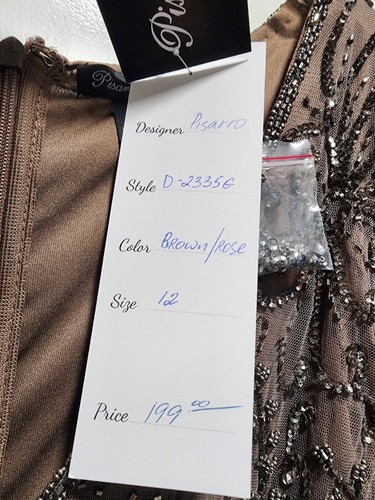 Pis
Pisar
Designer Pisarro
Style D-2335G
Color BROWN/ROSE
Size 12
Price 199.00